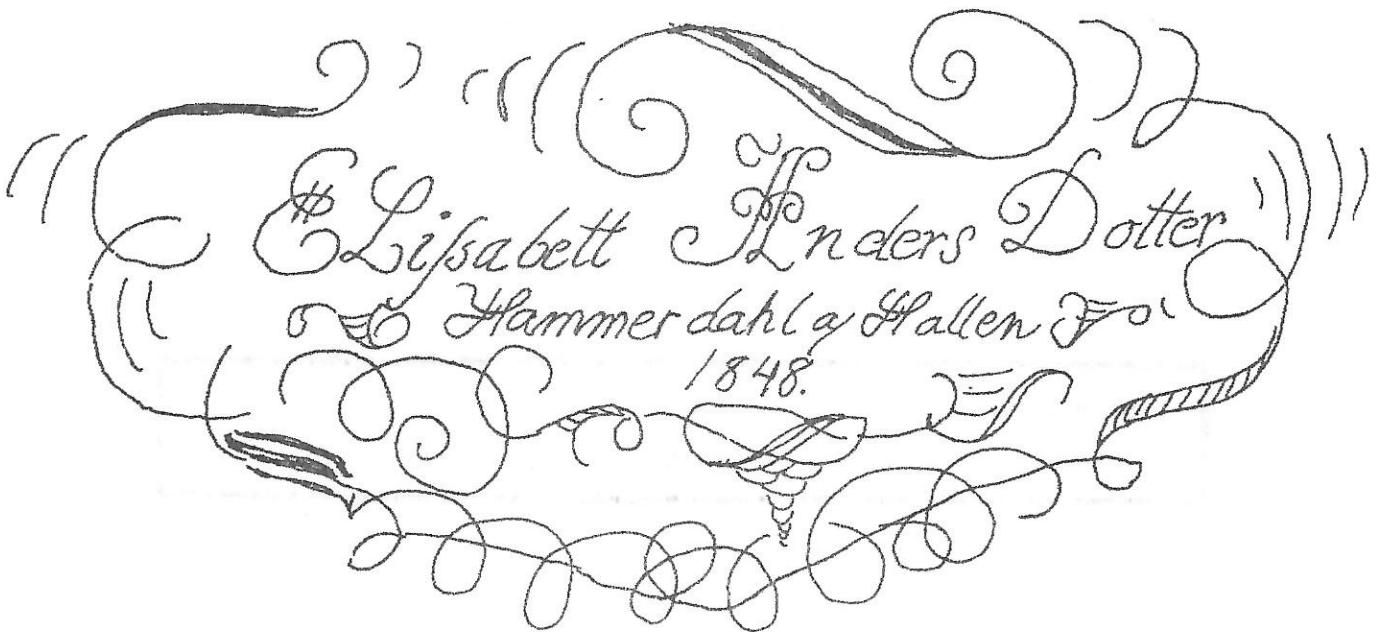 ELiſsabett Anders Dotter
Hammerdahl og Hallen
1848.